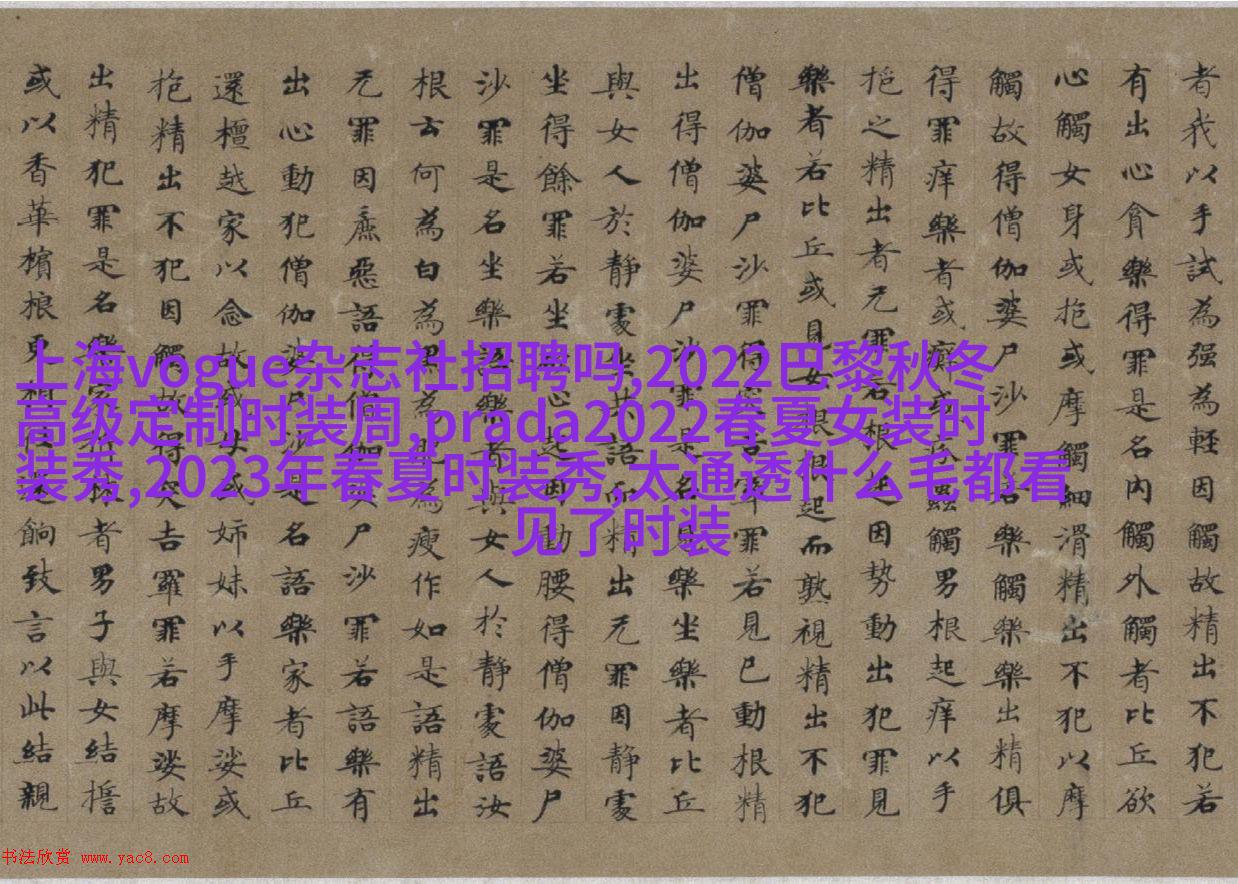 者我以手試為强為輕因觸故精出不犯若
有出心貪樂得罪是名内觸外觸者比丘欲
心觸女身或抱或摩觸細滑精出不犯以摩
觸故得僧伽婆尸沙罪若樂觸樂樂出精俱
得罪痒樂者或癬或疥蟲觸男根起痒以手
抱之精出者无罪若根起因勢動出犯罪見
樂者若比丘或見女根俱起而熟視精出不犯
僧伽婆尸沙罪得突吉羅罪若見已動根精
出得僧伽婆尸沙罪是名見樂坐樂者比丘
與女人於静處坐共語而精出无罪因静處
坐得餘罪若坐心起因動腰得僧伽婆尸
沙罪是名坐樂語樂者與女人於静處語汝
根云何為白為黑為肥為瘦作如是語精出
无罪因麁惡語得僧伽婆尸沙罪若語樂有
出心動犯僧伽婆尸沙是名語樂家者比丘
還檀越家以念故或母或姉妹以手摩娑或
抱精出不犯因觸故得突吉羅罪若摩娑故
出精犯罪是名樂家者男子與女結誓
或以香華檳榔更相往還餉致言以此結親
上海vogue杂志社招聘吗,2022巴黎秋冬
高级定制时装周,prada2022春夏女装时
装秀,2023年春夏时装秀,太通透什么毛都看
见了时装
书法欣赏 www.yac8.com